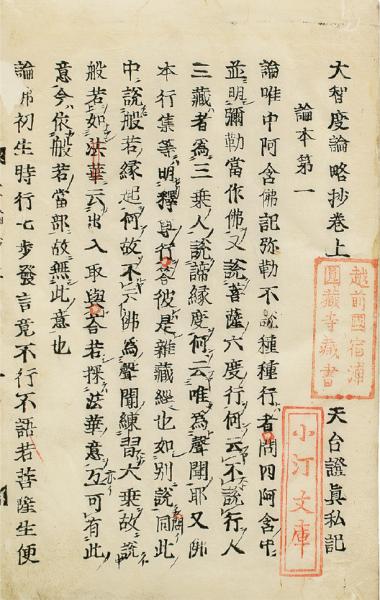 大智度論略抄卷上　天台證眞私記
論本第一
論唯中阿含佛記弥勒不說種種行者問四阿含中
並明彌勒當作佛又說菩薩六度行何云不說行人
三藏者為三乗人說諦縁度何云唯為聲聞耶又佛
本行集等明釋尊行答彼是雜藏經也如別說同此
中說般若縁起何故不云佛為聲聞練習大乗故說
般若如法華云出入取與答若探法華意互可有此
意今依般若當部故無此意也
論佛初生時行七步發言竟不行不語若菩薩生便
越前國宿浦
圓藏寺藏書
小汀文庫